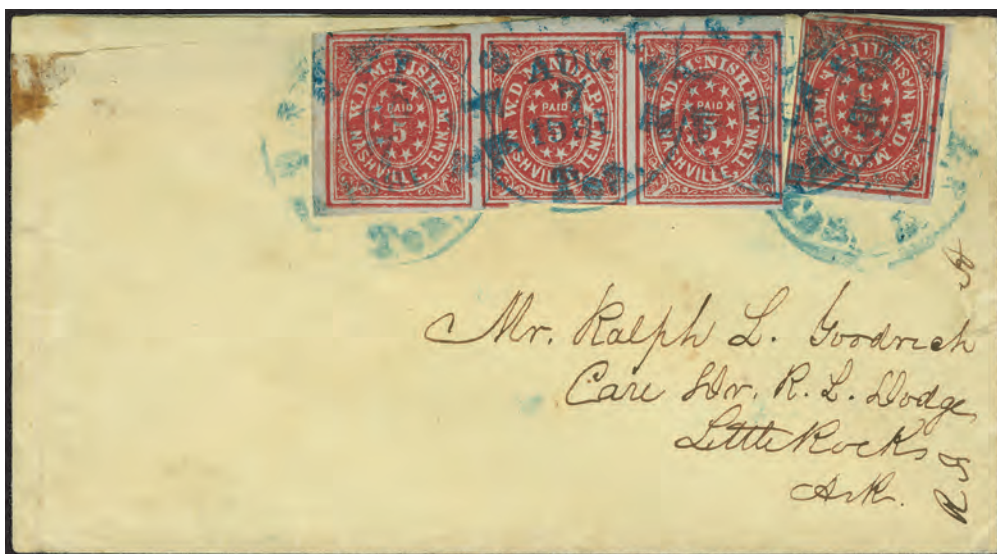 W.D. McNISH. P.M.
PAID
5
NASHVILLE, TENN.
W.D. McNISH. P.M.
PAID
5
NASHVILLE, TENN.
W.D. McNISH. P.M.
PAID
5
NASHVILLE, TENN.
W.D. McNISH. P.M.
5
NASHVILLE
Ten.
Ten.
Mr. Ralph L. Goodrich
Care Dr. R. L. Dodge
Little Rock
Ark.